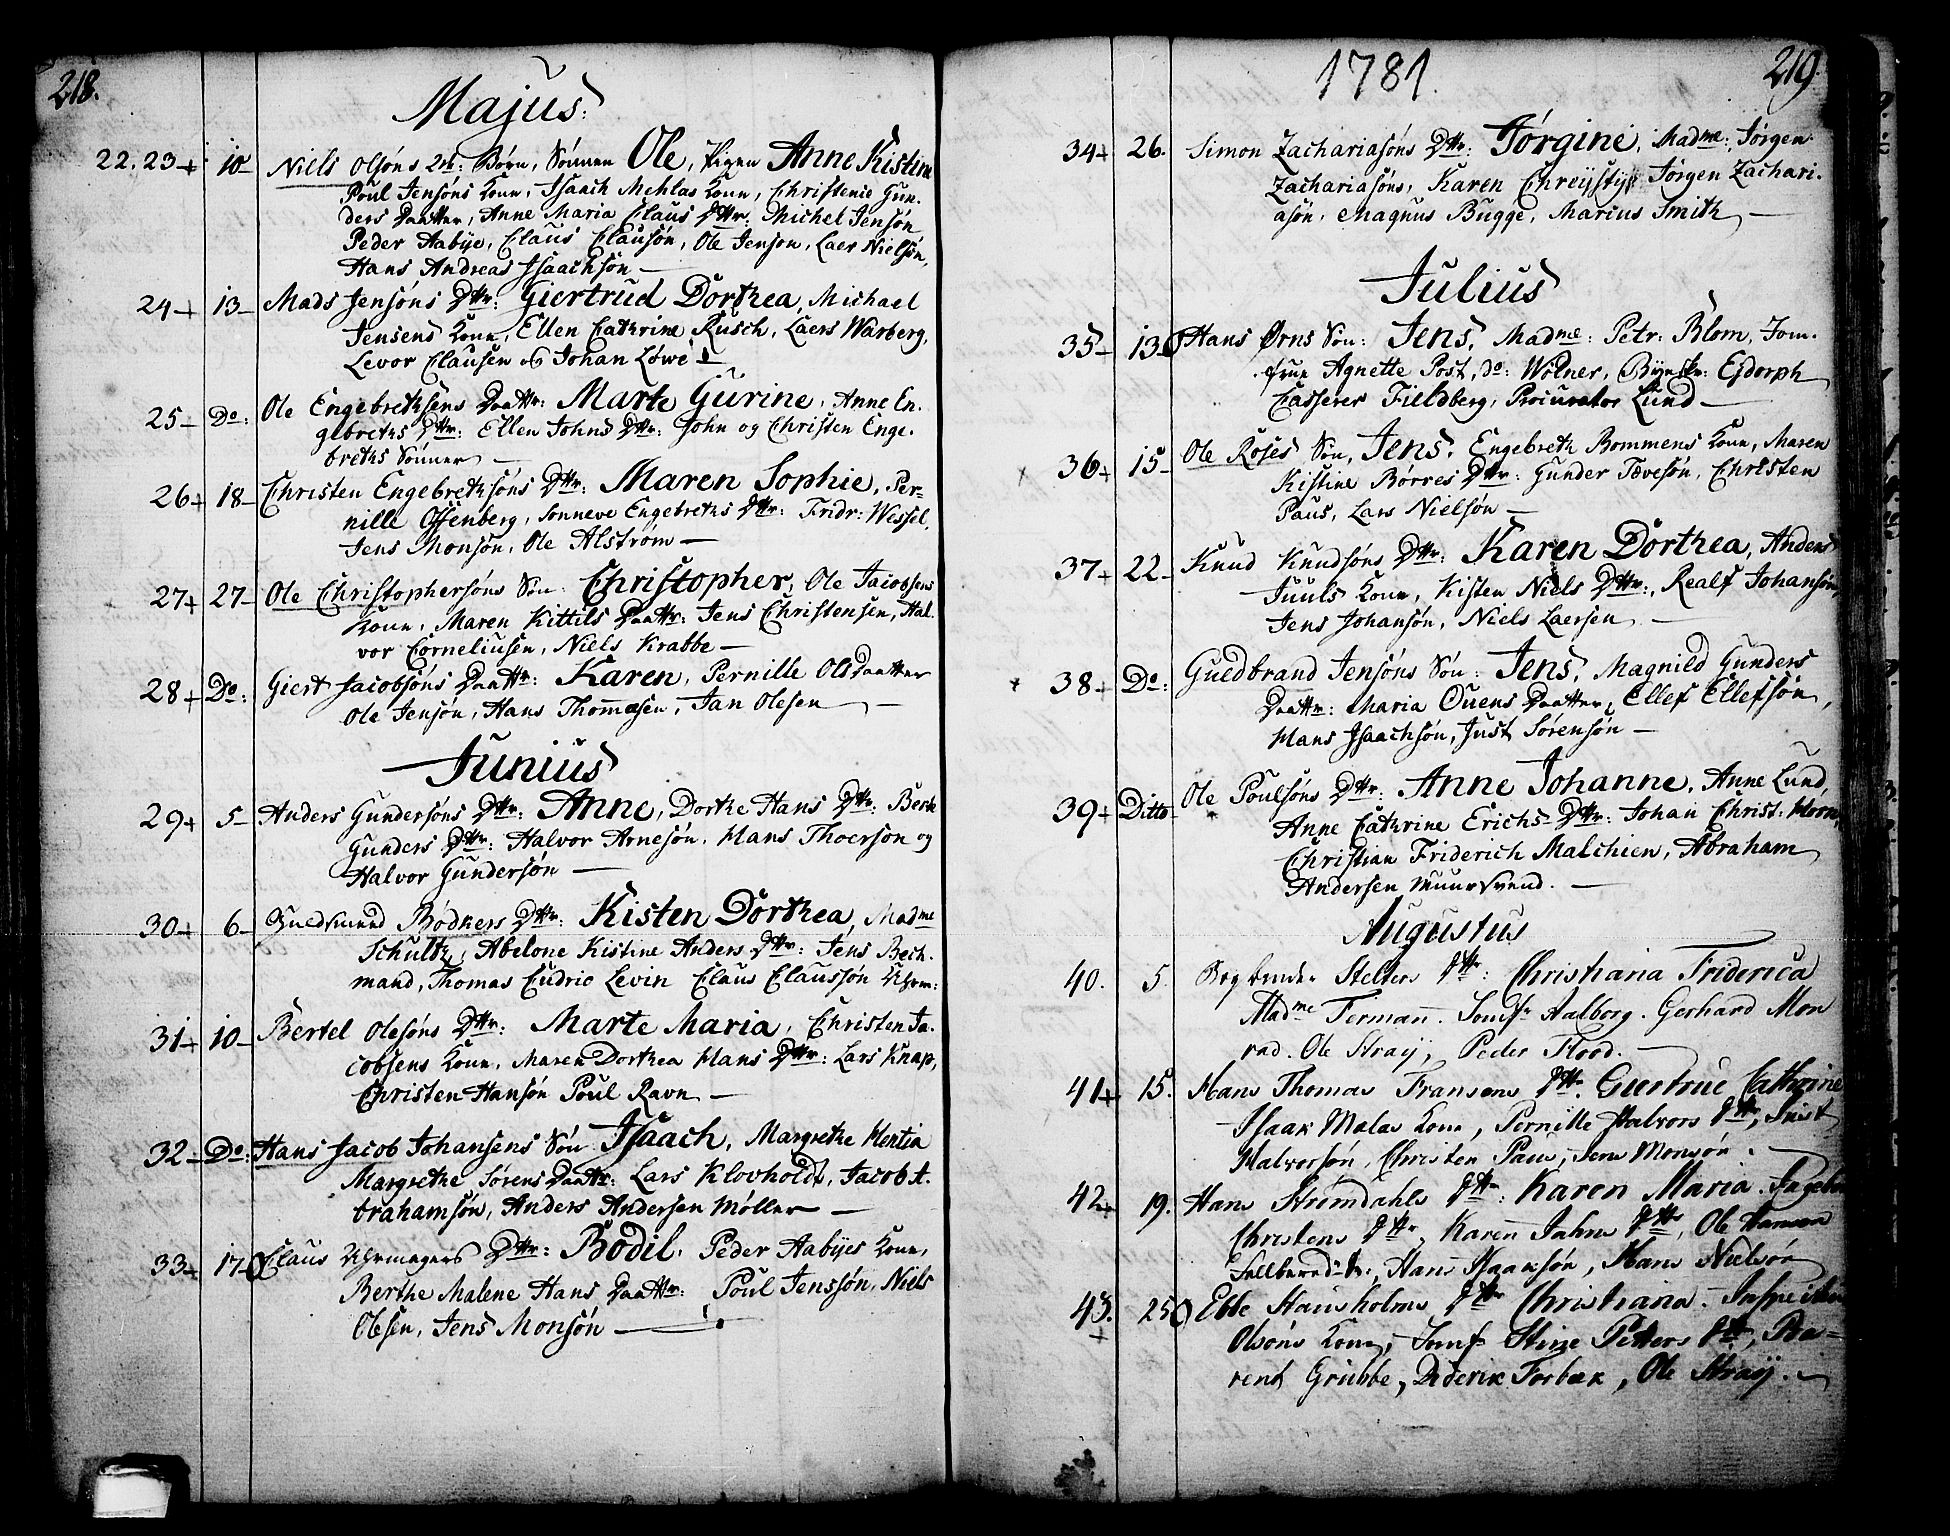 218.
Majus:
22. 23+ 10- Niels Olsóns 2de: Børn, Sónnen Ole, Pigen Anne Kistine
Poul Jensóns Kone, Isaach Mehlas Kone, Christenie Gun-
ders Daatter, Anne Maria Claus Dttr. Michel Jensón
Peder Aabÿe, Claus Clausón, Ole Jenson, Laers Nielsón,
Hans Andreas Isaachsón —
24-+ 13- Mads Jensóns Dttr: Giertrud Dorthea, Michael
Jensens Kone, Ellen Cathrine Rusch, Laers Warberg,
Levor Clausen og Johan Lówe
25- Do: Ole Engebrethsens Daattr: Marte Gurine, Anne En-
gebreths Dttr: Ellen Johns Dttr: John og Christen Enge-
breths Sónner —
26+ 18- Christen Engebrethsóns Dttr: Maren Sophie, Per-
nille Offenberg, Sonneve Engebreths Dttr: Fridr: Wessel,
Jens Monsón, Ole Alstrom —
27+ 27- Ole Christophersóns Són: Christopher, Ole Jacobsens
Kone, Maren Kittils Daattr: Jens Christensen, Hal-
vor Corneliusen, Niels Krabbe —
28+ Do: Giert Jacobsóns Daattr: Karen, Pernille Ols Daatter
Ole Jensón, Hans Thomæsen, Jan Olesen —
Junius
29+ 5- Anders Gundersóns Dttr: Anne, Dorthe Hans Dttr: Berte
Gunders Dttr: Halvor Arnesón, Hans Thoerson og
Halvor Gundersón —
30+ 6- Guldsmed Bódkers Dttr: Kisten Dorthea, Madme
Schultz, Abelone Kistine Anders Dttr: Jens Bech-
mand, Thomas Cudrio Levin Claus Claussón Uhrm:
31+ 10- Bertel Olesóns Dttr: Marte Maria, Christen Ja-
cobsens Kone, Maren Dorthea Hans Dttr: Lars Knap,
Christen Hansón Poul Ravn —
32- Do: Hans Jacob Johansens Són Isaach, Margrethe Hentia
Margrethe Sórens Daattr: Lars Klovholdt, Jacob A-
brahamsón, Anders Andersen Móller —
33+ 17- Claus Uhrmagers Dttr: Bodil, Peder Aabÿes Kone,
Berthe Malene Hans Daattr: Poul Jenssón, Niels
Olsen, Jens Monsón —
1781.
219.
34+ 26. Simon Zachariasóns Dttr: Jórgine, Madme: Jórgen
Zachariasóns, Karen Jórgen Zachari-
asón, Magnus Bugge, Marcus Smith —
Julius
35- 13- Hans Ørns Són: Jens, Madme: Petr: Blom, Jom-
frue Agnette Post, do: Wólner, Bÿeskr: Ejdorph
Casserer Fieldberg, Procurator Lund —
36+ 15- Ole Roses Són, Jens, Engebreth Bommens Kone, Maren
Kistine Børres Dttr: Gunder Tovesón, Christen
Paus, Lars Nielsón —
37+ 22- Knud Knudsóns Dttr: Karen Dorthea, Anders
Juuls Kone, Kisten Niels Dttr:, Realf Johansón,
Jens Johansón, Niels Laersen —
38+ Do: Guldbrand Jensóns Són: Jens, Magnild Gunders
Daattr: Maria Ouens Daatter, Ellef Ellefsón,
Hans Isaachsón, Just Sórensón —
39+ Ditto Ole Poulsóns Dttr: Anne Johanne, Anne Lund,
Anne Cathrine Erichs Dttr: Johan Christ: Horn,
Christian Friderich Malchien, Abraham
Andersen Muursvend. —
Augustus
40. 5. Bogbinder Stelters Dttr: Christiana Friderica
Madme Fermann. Jomfr Aalborg. Gerhard Mon
rad. Ole Straÿ, Peder Flood. —
41+ 15. Hans Thomas Fransens Dttr. Giertrue Cathrine
Isaak Malas Kone, Pernille Halvors Dttr, Just
Halvorsón, Christen Paus, Jens Monsón. —
42+ 19. Hans Strómdahls Dttr: Karen Maria. Ingebor
Christens Dttr, Karen Jahns Dttr, Ole Hansen
Hans Isaaksón, Hans Nielsón
43. + 25 Ebbe Hausholms Dttr Christiana. Inspecteur
Olsóns Kone, Jomf Stine Petters Dttr, Be-
rent Grubbe, Diderik Forbæk, Ole Straÿ. —